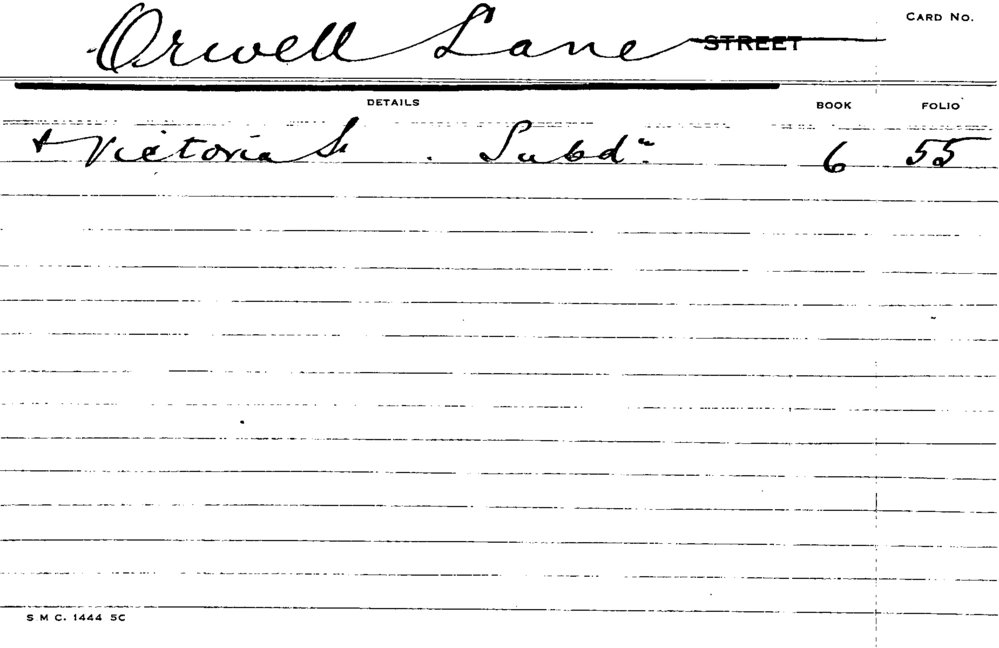 CARD NO.
Orwell Lane STREET
DETAILS BOOK FOLIO
+ Victoria St . Subdn. 6 55
S M C. 1444 5C